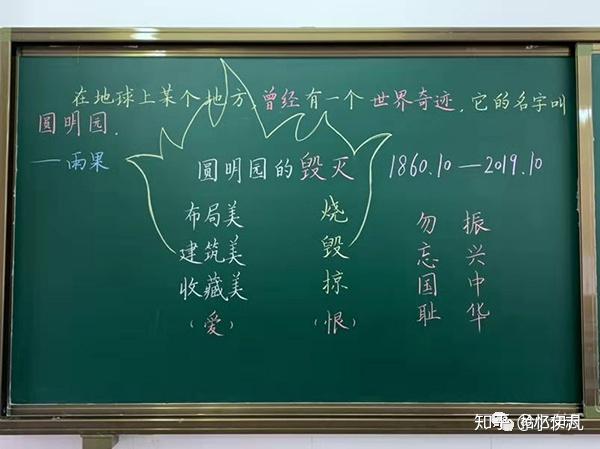 在地球上某个地方,曾经有一个世界奇迹,它的名字叫
圆明园.
——雨果
圆明园的毁灭
1860.10—2019.10
布局美
建筑美
收藏美
(爱)
烧
毁
掠
(恨)
勿忘国耻
振兴中华
知乎